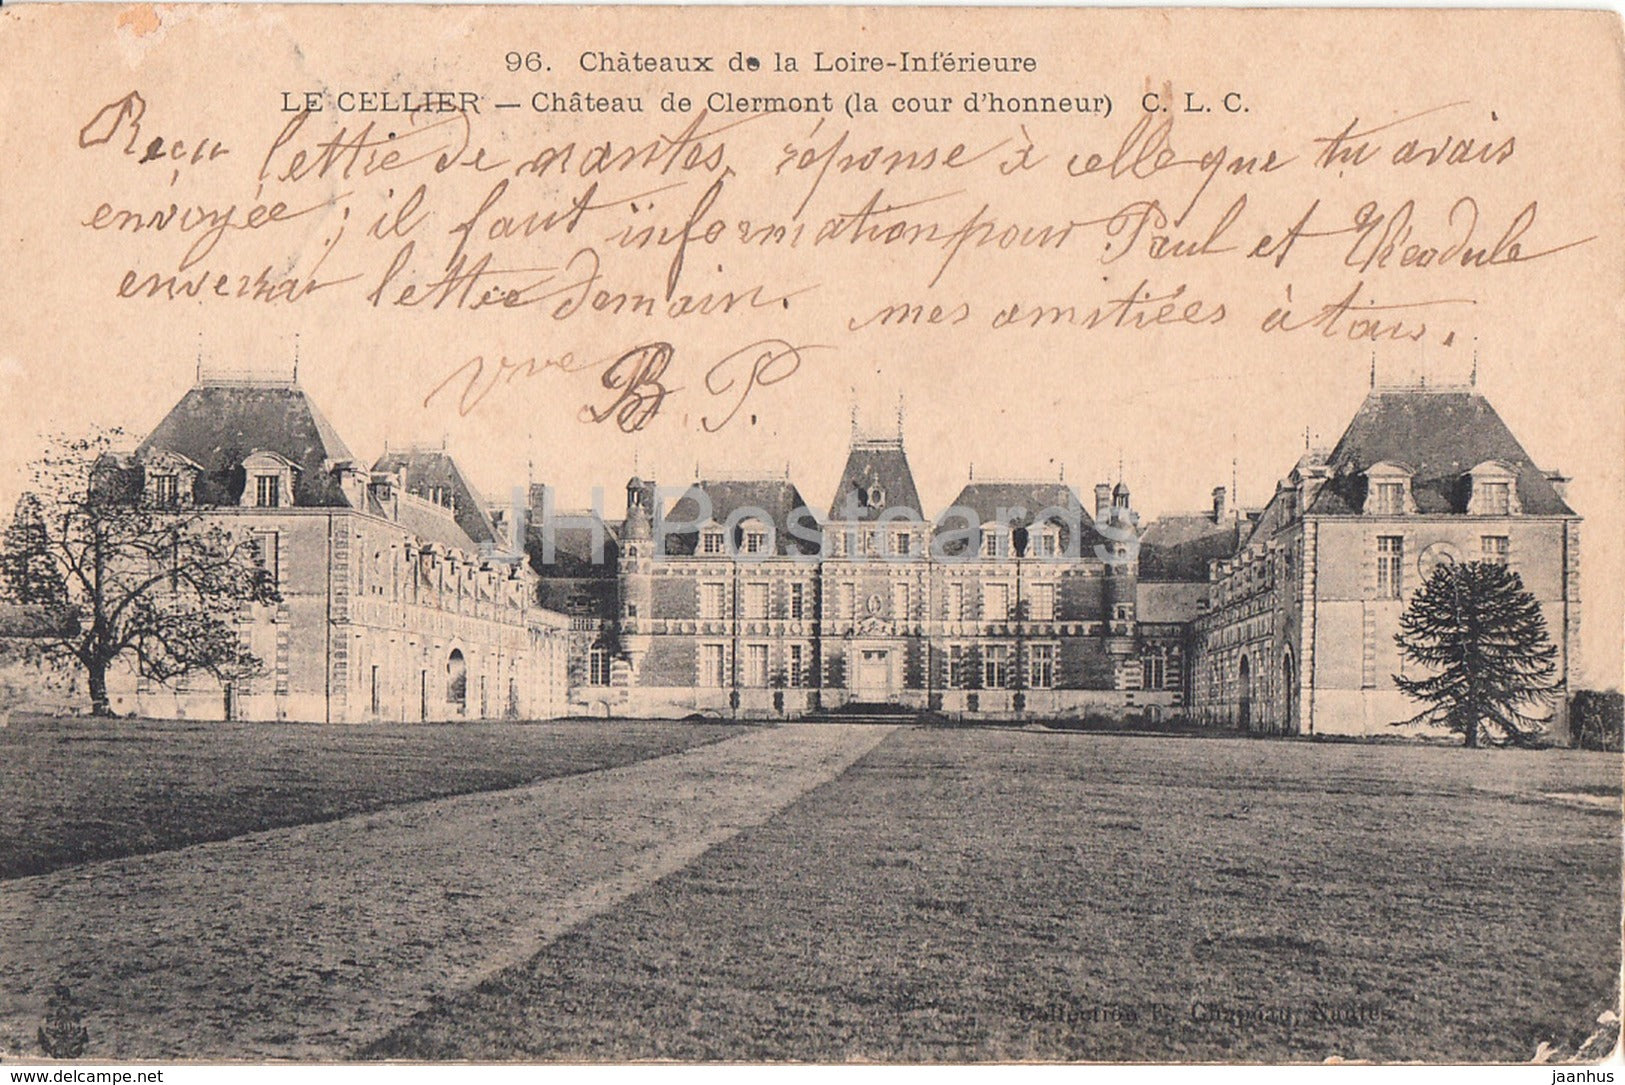 96. Châteaux de la Loire-Inférieure
LE CELLIER — Château de Clermont (la cour d'honneur) C. L. C.
Reçu lettre de nantes, réponse à celle que tu avais
envoyée; il faut information pour Paul et Théodule
enverrai lettre demain. mes amitiées à tous.
Vve B. P.
JH Postcards
Collection F. Chapeau, Nantes
delcampe.net
jaanhus